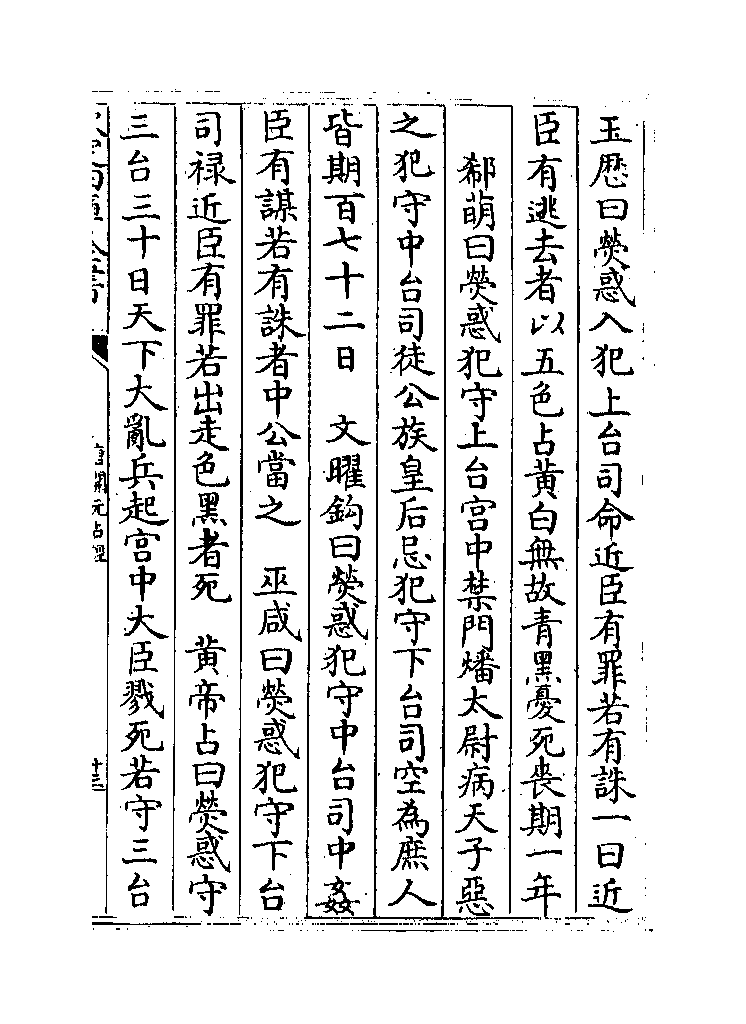 玉歴曰熒惑入犯上台司命近臣有罪若有誅一曰近
臣有逃去者以五色占黄白無故青黑憂死喪期一年
郗萌曰熒惑犯守上台宫中禁門燔太尉病天子惡
之犯守中台司徒公族皇后忌犯守下台司空為庶人
皆期百七十二日　文曜鈎曰熒惑犯守中台司中姦
臣有謀若有誅者中公當之　巫咸曰熒惑犯守下台
司禄近臣有罪若出走色黑者死　黄帝占曰熒惑守
三台三十日天下大亂兵起宫中大臣戮死若守三台
唐開元占經